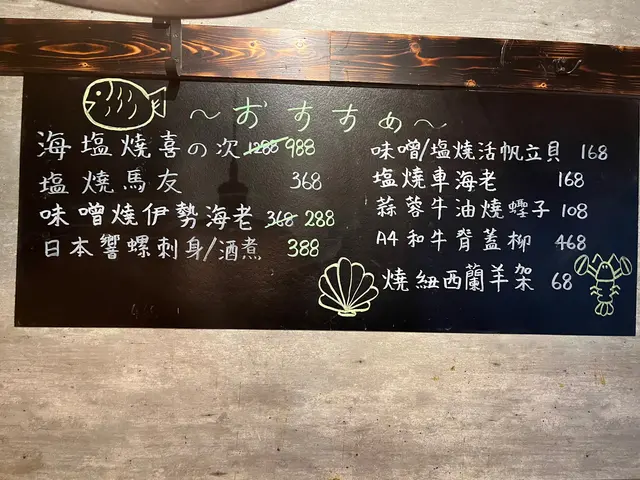 ～おすすめ～
海塩燒喜の次 1288 988
塩燒馬友 368
味噌燒伊勢海老 368 288
日本響螺刺身/酒煮 388
味噌/塩燒活帆立貝 168
塩燒車海老 168
蒜蓉牛油燒蟶子 108
A4和牛脊蓋柳 468
燒紐西蘭羊架 68